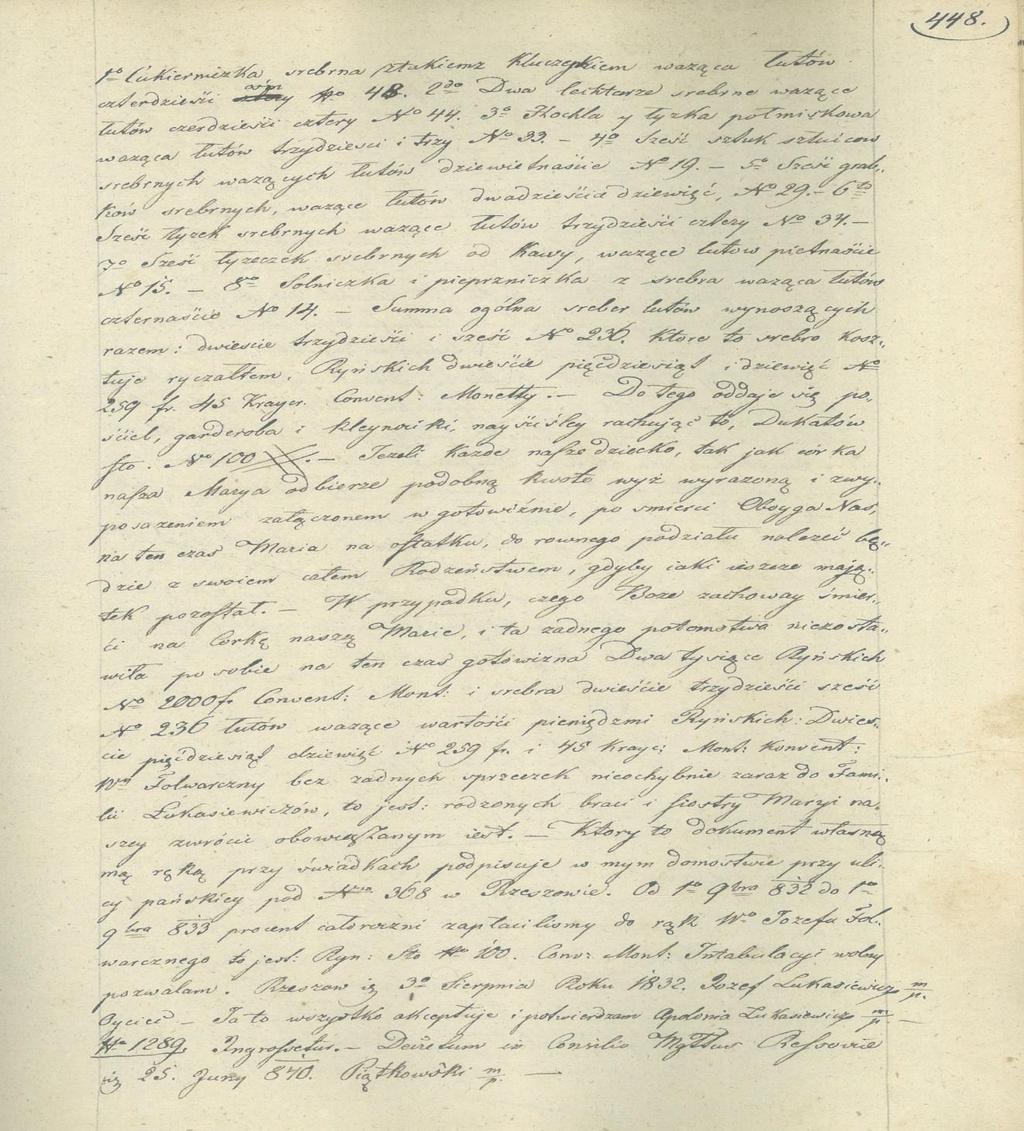 448.
1mo Cukierniczka srebrna z takiemż kluczykiem ważąca łutów
czterdzieści osm No 48. 2do Dwa lechtarze srebrne ważące
łutów czerdzieści cztery No 44. 3o Chochla y łyżka połmiskowa
ważąca łutów trzydzieści i trzy No 33. – 4o Sześć sztuk sztuićow
srebrnych ważących łutów dziewietnaście No 19. – 5o Sześć grab„
ków srebrnych, ważące łutów dwadzieścia dziewięć, No 29. – 6to
Sześć łyżek srebrnych ważące łutów trzydzieści cztery No 34. –
7o Sześć łyżeczek srebrnych od Kawy, ważące łutow pietnaście
No 15. – 8vo Solniczka i pieprzniczka z srebra ważąca łutów
czternaście No 14. – Summa ogólna sreber łutów wynoszących
razem: dwieście trzydzieści i sześć No 236. Które to srebro kosz„
tuje ryczałtem, Ryńskich dwieście pięćdziesiąt i dziewięć No
259 fr. 45 Krayer. Convent: Monetty. – Do tego oddaje się po„
ściel, garderoba i kleynociki, nayściśley rachując to, Dukatów
sto. No 100 . – Jeżeli Każde nasze dziecko, tak jak córka
nasza Marya odbierze podobną kwotę wyż wyrażoną i z wy„
posażeniem załączonem w gotowiźnie, po śmierci Oboyga Nas,
na ten czas Maria na ostatku, do rownego podziału należeć bę„
dzie z swoiem całem Rodzeństwem, gdyby iaki ieszcze mają„
tek pozostał. – W przypadku, czego Boże zachoway śmier„
ći na Córkę naszą Marię, i ta żadnego potomstwa niezosta„
wiła po sobie na ten czas gotowizna Dwa tysiące Ryńskich
No 2000 f. Convent: Mont: i srebra dwieście trzydzieści sześć
No 236 łutów ważące wartości pieniędzmi Ryńskich: Dwieś„
cie pięćdziesiąt dziewięć No 259 fr. i 45 Krayc: Mont: Konvent:
Wny Folwarczny bez żadnych sprzeczek nieochybnie zaraz do Fami„
lii Łukasiewiczów, to jest: rodzonych braci i siostry Maryi na„
szey zwrócić obowiązanym iest. – Który to dokument własną
mą ręką przy świadkach podpisuje w mym domostwie przy uli„
cy pańskiey pod Nro 368 w Rzeszowie. Od 1o 9bra 832 do 1o
9bra 833 procent całoroczni zapłaciliśmy do rąk Wo Jozefa Fol„
warcznego to jest: Ryn: sto No 100. Conv: Mont: Intabulacyi wolny
pozwalam. Rzeszow 3o Sierpnia Roku 1832. Jozef Łukasiewicz m/p.
Oyciec – Ja to wszystko akceptuje i potwierdzam Apolonia Łukasiewicz m/p. –
No 1289. Ingrossetur. – Decretum in Consilio Mgttus Ressoviæ
25. Juny 840. Piątkowski m/p. –